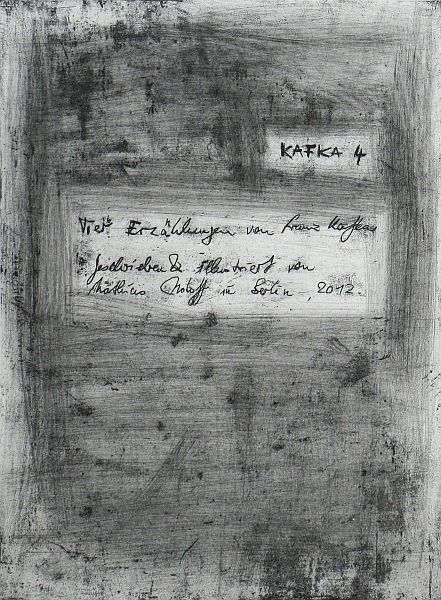 KAFKA 4
Vier Erzählungen von Franz Kafka
geschrieben & illustriert von
in Berlin, 2012.